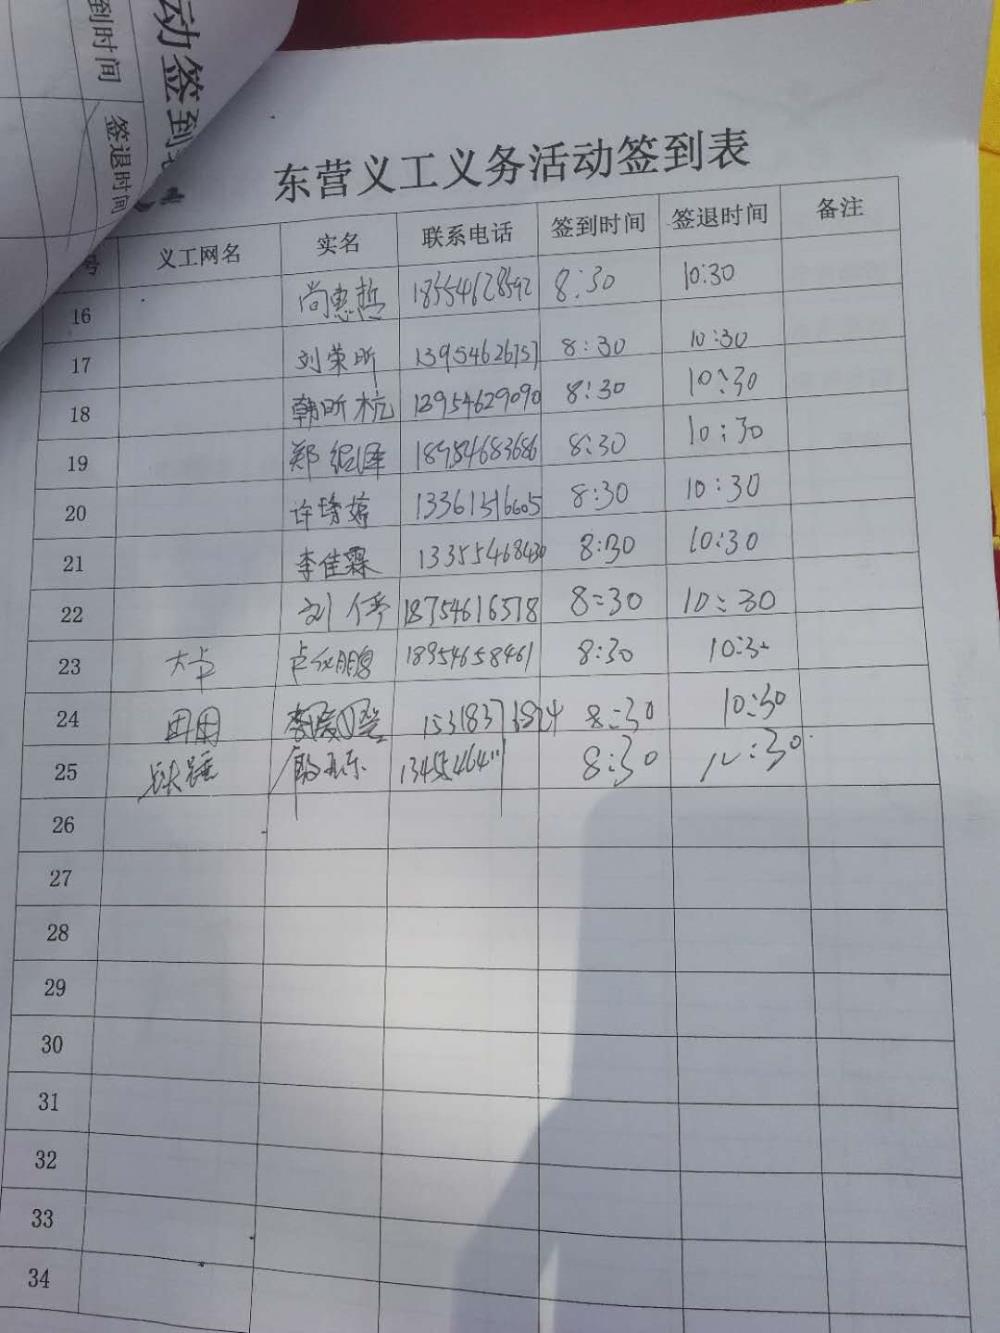 动签到
到时间 签退时间
东营义工义务活动签到表
号 义工网名 实名 联系电话 签到时间 签退时间 备注
16 尚惠哲 18554628592 8:30 10:30
17 刘荣昕 13954626757 8:30 10:30
18 韩昕杭 13954629090 8:30 10:30
19 郑 泽 18954683686 8:30 10:30
20 许 13361516605 8:30 10:30
21 李佳霖 13355468430 8:30 10:30
22 刘 18754616578 8:30 10:30
23 大卡 卢 鹏 18954658461 8:30 10:30
24 田田 李爱 8:30 10:30
25 铁锤 8:30 10:30
26
27
28
29
30
31
32
33
34